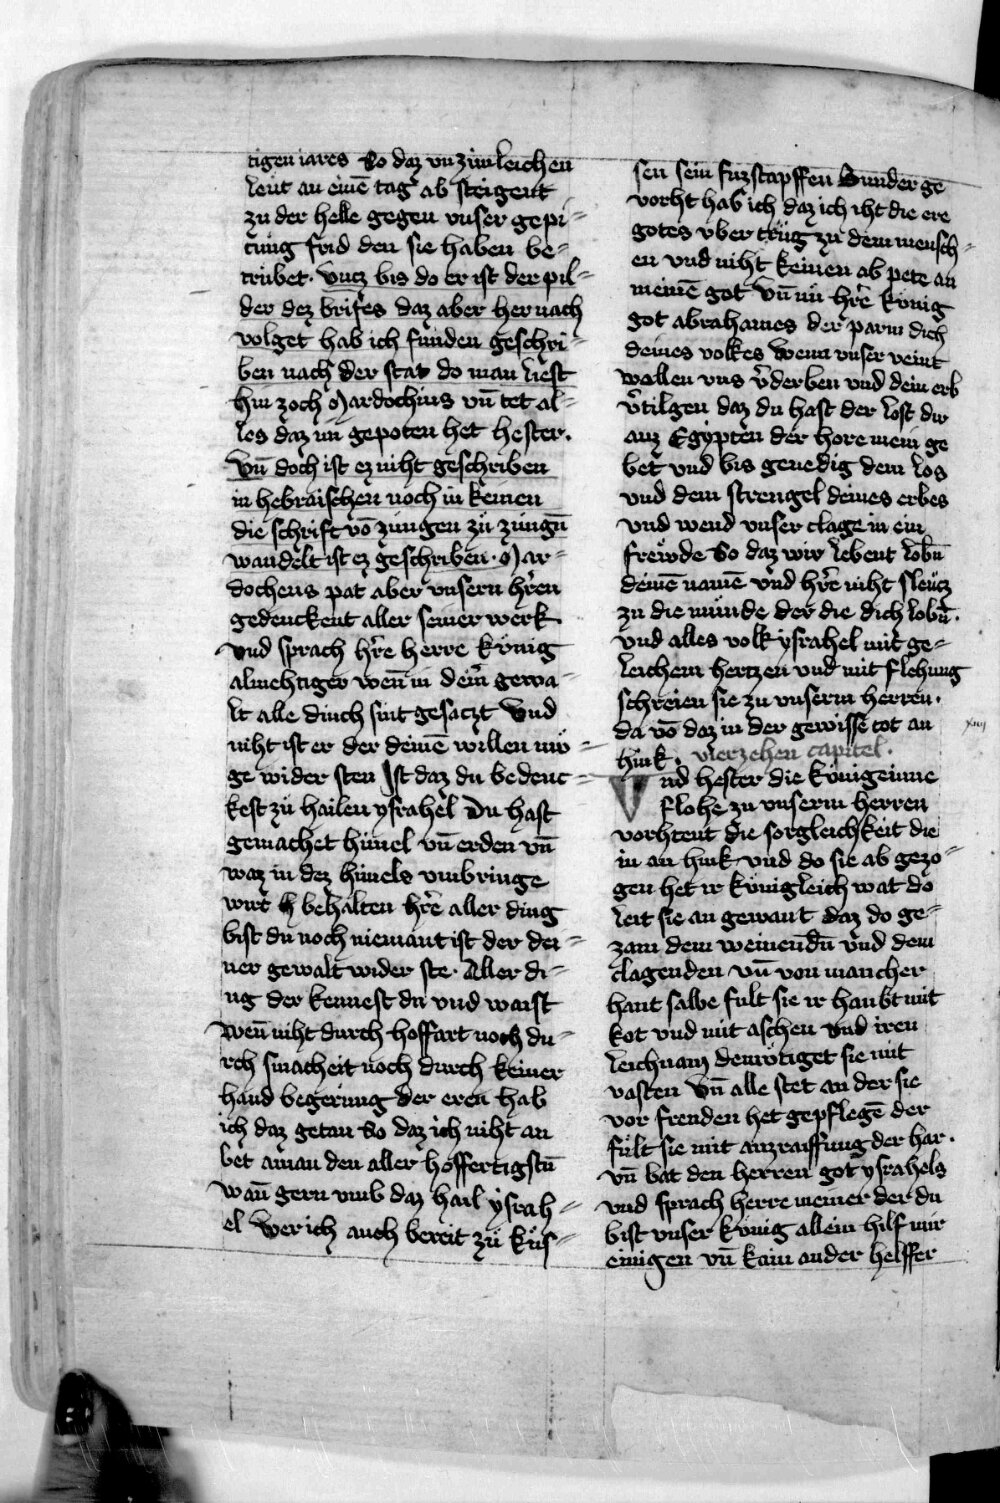 tigen iares So daz vnzimleichen
leut an einē tag ab steigent
zu der helle gegen vnser gepi=
tung frid den sie haben be=
trubet. vntz bis do er ist der pil=
der dez brifes daz aber her nach
volget hab ich funden geschri=
ben nach der stat do man liest
hin zoch Mardochius vn̄ tet al=
les daz im gepoten het hester.
Vn̄ doch ist ez niht geschriben
in hebraischen noch in keinen
die schrift vō zungen zů zungn̄
wandelt ist ez geschriben. Mar=
docheus pat aber vnsern hr̄en
gedenckent aller seiner werk
vnd sprach hr̄e herre kǒnig
almehtiger wen̄ in dein̄ gewa=
lt alle dinch sint gesaczt Vnd
niht ist er der deinē willen mǒ=
ge wider sten Ist daz du bedenc=
kest zů hailen ysrahel Du hast
gemachet himel vn̄ erden vn̄
waz in dez himels vmbringe
wirt behalten hr̄e aller ding
bist du noch niemant ist der dei=
ner gewalt wider ste. Aller di=
ng der kennest du vnd waist
wen̄ niht durch hoffart noch du=
rch smacheit noch durch keiner
hand begerung der eren hab
ich daz getan So daz ich niht an
bet aman den aller hoffertigstn̄
wan̄ gern vmb daz hail ysrah=
el Wer ich auch bereit zů kůs=
sen sein fuzstapffen Sunder ge
vorht hab ich daz ich iht die ere
gotes vber trůg zu dem mensch=
en vnd niht keinen ab pete an
meinē got Vn̄ nu hr̄e kǒnig
got abrahames der parm dich
deines volkes Wenn vnser veint
wollen vns v̄derben vnd dein erb
v̄tilgen daz du hast der lost dir
auz Egypten der hore mein ge
bet vnd bis genedig dem los
vnd dem strengel deines erbes
vnd wend vnser clage in ein
frewde So daz wir lebent lobn̄
deinē namē Vnd hr̄e niht sleuz
zu die munde der die dich lobn̄.
vnd alles volk ysrahel mit ge=
leichem hertzen vnd mit flehung
schreien sie zu vnserm herren.
da vō daz in der gewisse tot an
hink. vierzehen capitel.
xiiij
Vnd hester die kǒnigeinne
flohe zu vnserm herren
vorhtent die sorgleichkeit die
in an hink vnd do sie ab gezo=
gen het ir kǒnigleich wat do
leit sie an gewant daz do ge=
zam dem weinendn̄ vnd dem
clagenden vn̄ von mancher
hant salbe fult sie ir haubt mit
kot vnd mit aschen vnd iren
leichnam demǒtiget sie mit
vasten Vn̄ alle stet an der sie
vor freuden het gepflegē der
fůlt sie mit auzraiffung der har.
vn̄ bat den herren got ysrahels
vnd sprach herre meiner der du
bist vnser kǒnig allein hilf mir
einigen vn̄ kain ander helffer